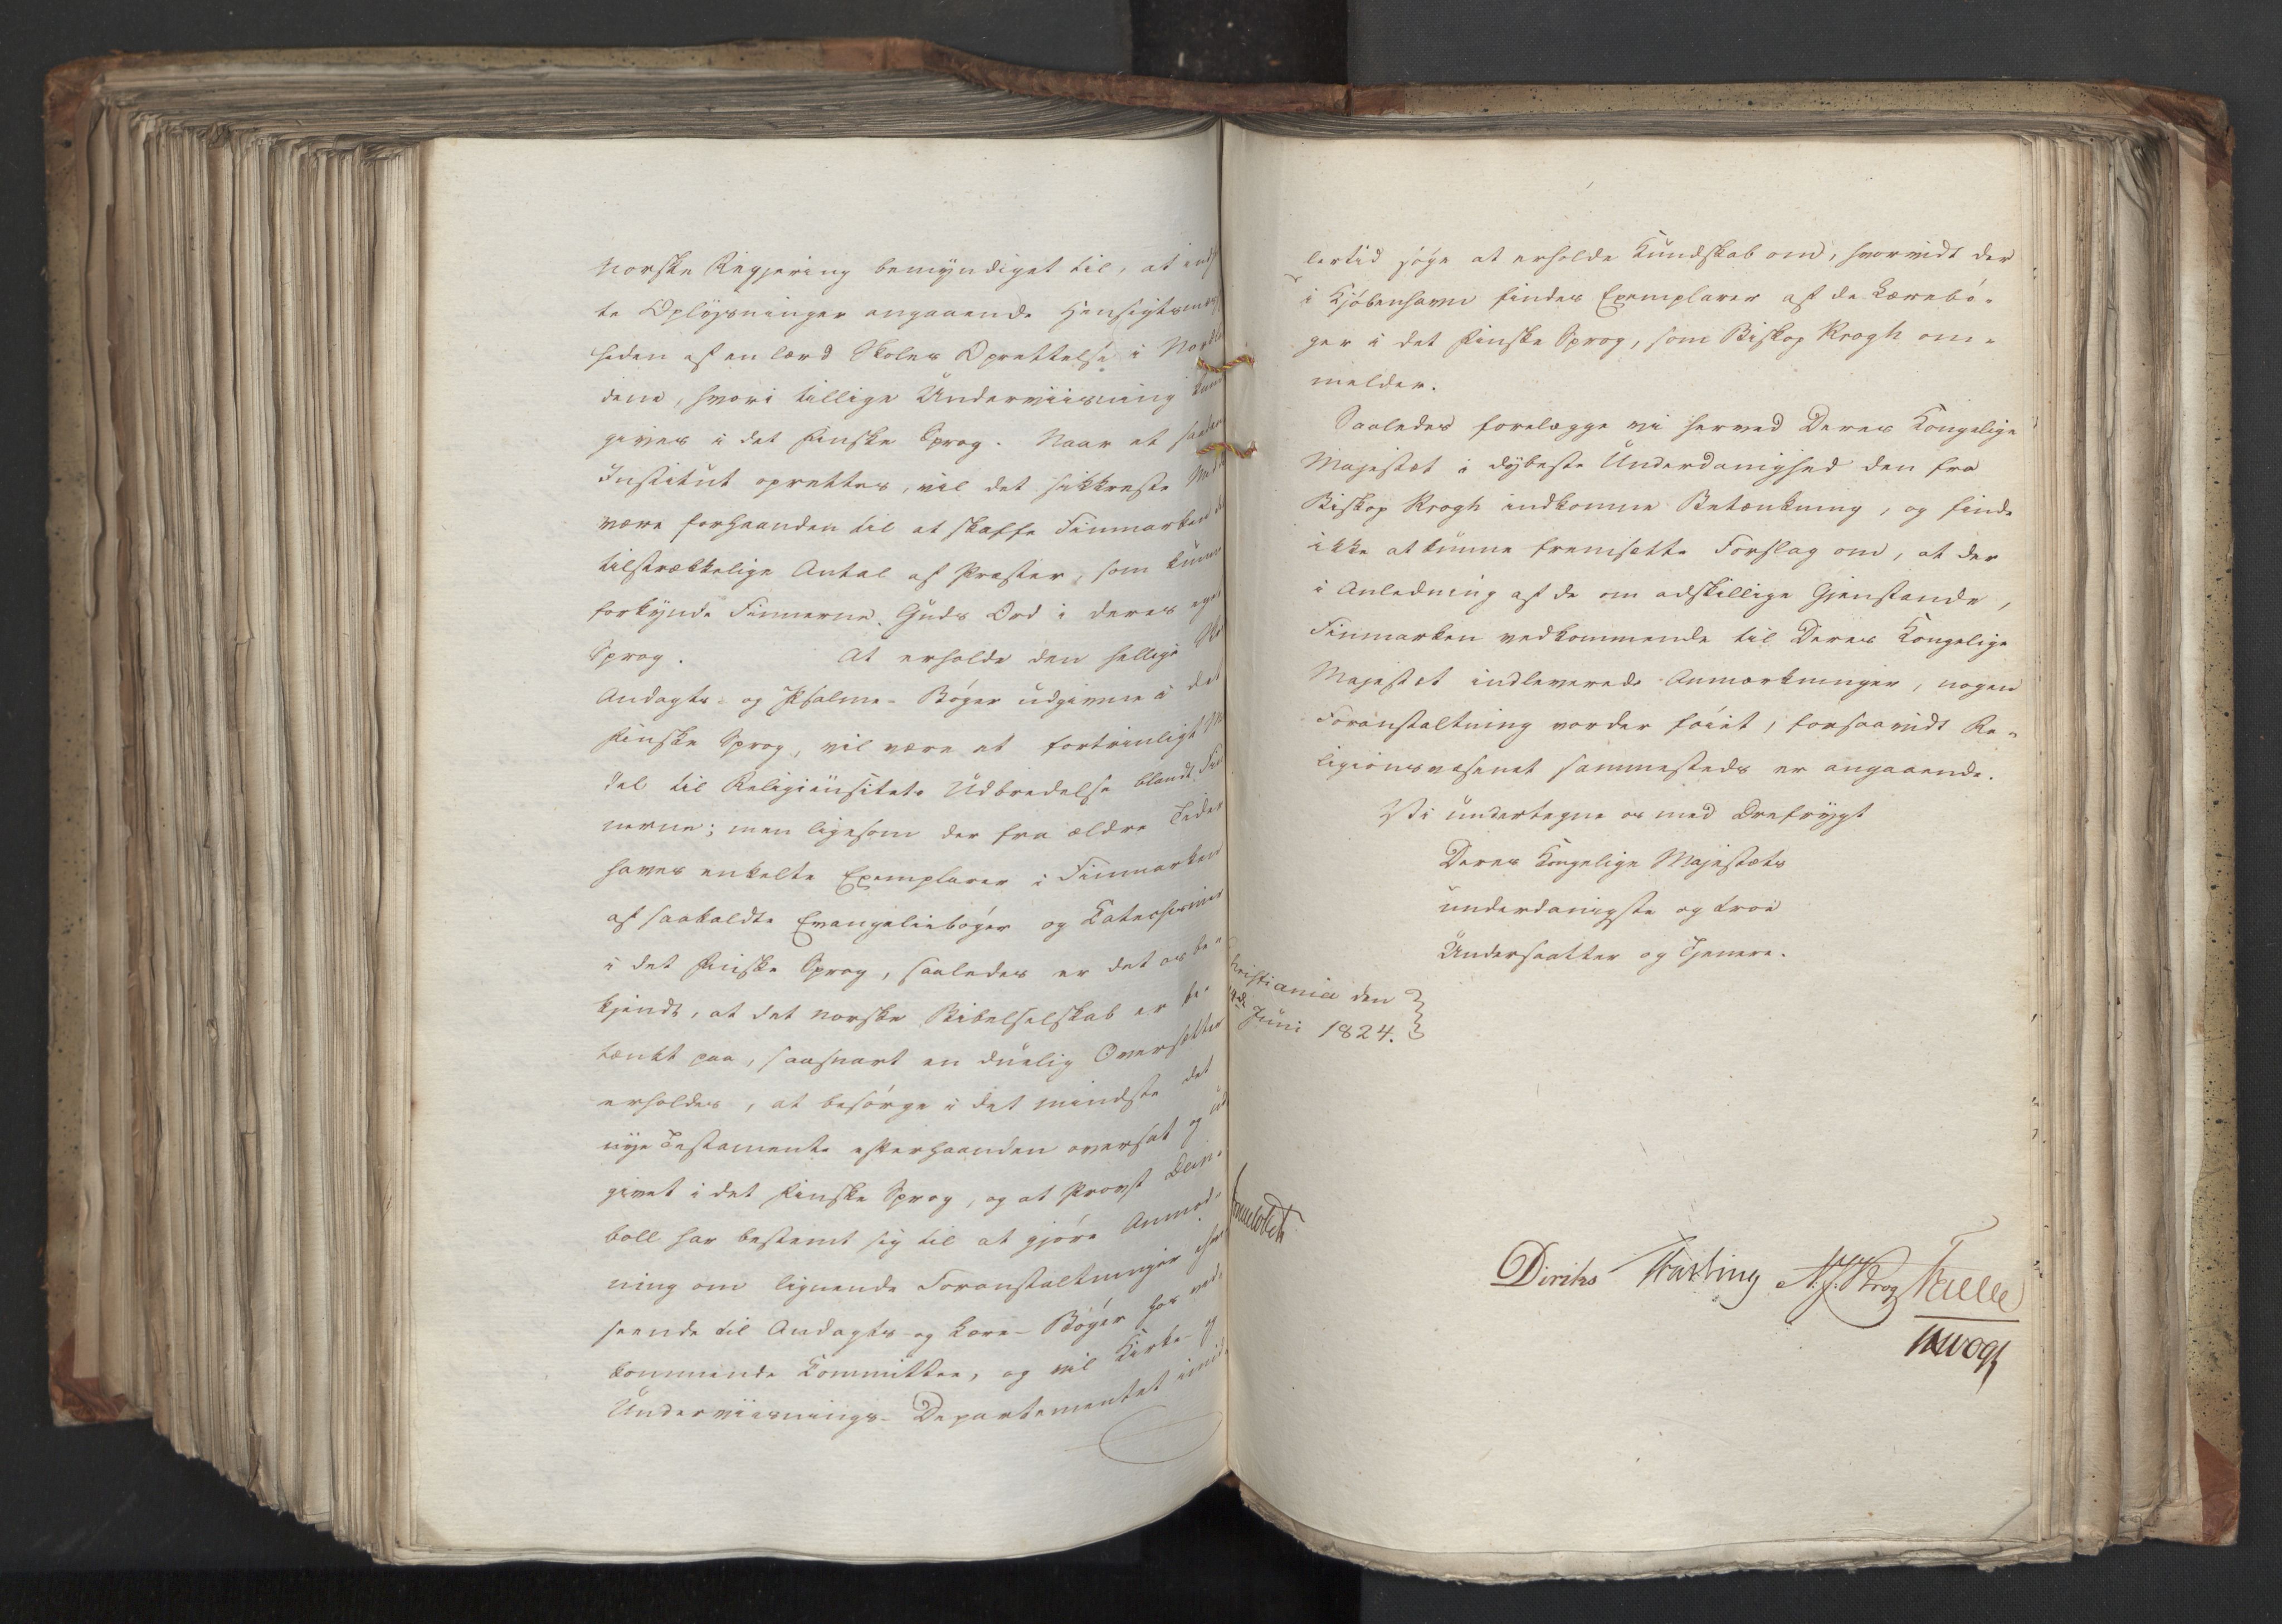 norske Regjering bemyndiget til, at indh
te Oplysninger angaaende Hensigtsmæs
heden af en lærd Skoles Oprettelse i Nordl
dene, hvori tillige Underviisning kun
gives i det finske Sprog. Naar et saadan
Institut oprettes, vil det sikkreste Mid
være forhaanden til at skaffe Finmarken d
tilstrækkelige Antal af Præster, som kunne
forkynde Finnerne Guds Ord i deres eget
Sprog. At erholde den hellige Skr
Andagts- og Psalme-Bøger udgivne i det
finske Sprog, vil være et fortrinligt Mi
del til Religiøsitets Udbredelse blandt Fin
nerne; men ligesom der fra ældre Tider
haves enkelte Exemplarer i Finmarken
af saakaldte Evangeliebøger og Katechismer
i det finske Sprog, saaledes er det os be-
kjendt, at det norske Bibelselskab er be-
tænkt paa, saasnart en duelig Oversætter
erholdes, at besørge i det mindste det
nye Testamente efterhaanden oversat og ud
givet i det finske Sprog, og at Provst Dein-
boll har bestemt sig til at gjøre Anmod-
ning om lignende Foranstaltninger
seende til Andagts- og Lære-Bøger hos ved-
kommende Committee, og vil Kirke- og
Underviisnings-Departementet imid-
lertid søge at erholde Kundskab om, hvorvidt der
i Kjøbenhavn findes Exemplarer af de Lærebø-
ger i det finske Sprog, som Biskop Krogh om-
melder.
Saaledes forelægge vi herved Deres Kongelige
Majestæt i dybeste Underdanighed den fra
Biskop Krogh indkomne Betænkning, og finde
ikke at kunne fremsætte Forslag om, at der
i Anledning af de om adskillige Gjenstande,
Finmarken vedkommende til Deres Kongelige
Majestæt indleverede Anmærkninger, nogen
Foranstaltning vorder føiet, forsaavidt Re-
ligionsvæsenet sammesteds er angaaende.
Vi undertegne os med Ærefrygt
Deres Kongelige Majestæts
underdanigste og troe
Undersaatter og Tjenere.
Christiania den
14de Juni 1824.
Diriks
Krog